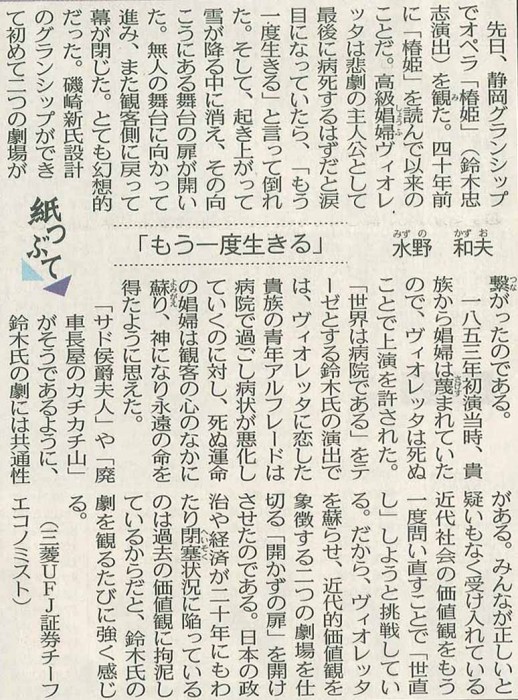 紙つぶて
「もう一度生きる」
水野 和夫
みずの かずお
先日、静岡グランシップ
でオペラ「椿姫」(鈴木忠
志演出)を観た。四十年前
に「椿姫」を読んで以来の
ことだ。高級娼婦ヴィオレ
ッタは悲劇の主人公として
最後に病死するはずだと涙
目になっていたら、「もう
一度生きる」と言って倒れ
た。そして、起き上がって
雪が降る中に消え、その向
こうにある舞台の扉が開い
た。無人の舞台に向かって
進み、また観客側に戻って
幕が閉じた。とても幻想的
だった。磯崎新氏設計
のグランシップができ
て初めて二つの劇場が
繋がったのである。
一八五三年初演当時、貴
族から娼婦は蔑まれていた
ので、ヴィオレッタは死ぬ
ことで上演を許された。
「世界は病院である」をテ
ーゼとする鈴木氏の演出で
は、ヴィオレッタに恋した
貴族の青年アルフレードは
病院で過ごし病状が悪化し
ていくのに対し、死ぬ運命
の娼婦は観客の心のなかに
蘇り、神になり永遠の命を
得たように思えた。
「サド侯爵夫人」や「廃
車長屋のカチカチ山」
がそうであるように、
鈴木氏の劇には共通性
がある。みんなが正しいと
疑いもなく受け入れている
近代社会の価値観をもう
一度問い直すことで「世直
し」しようと挑戦してい
る。だから、ヴィオレッタ
を蘇らせ、近代的価値観を
象徴する二つの劇場を仕
切る「開かずの扉」を開け
させたのである。日本の政
治や経済が二十年にもわ
たり閉塞状況に陥っている
のは過去の価値観に拘泥し
ているからだと、鈴木氏の
劇を観るたびに強く感じ
る。
(三菱UFJ証券チーフ
エコノミスト)